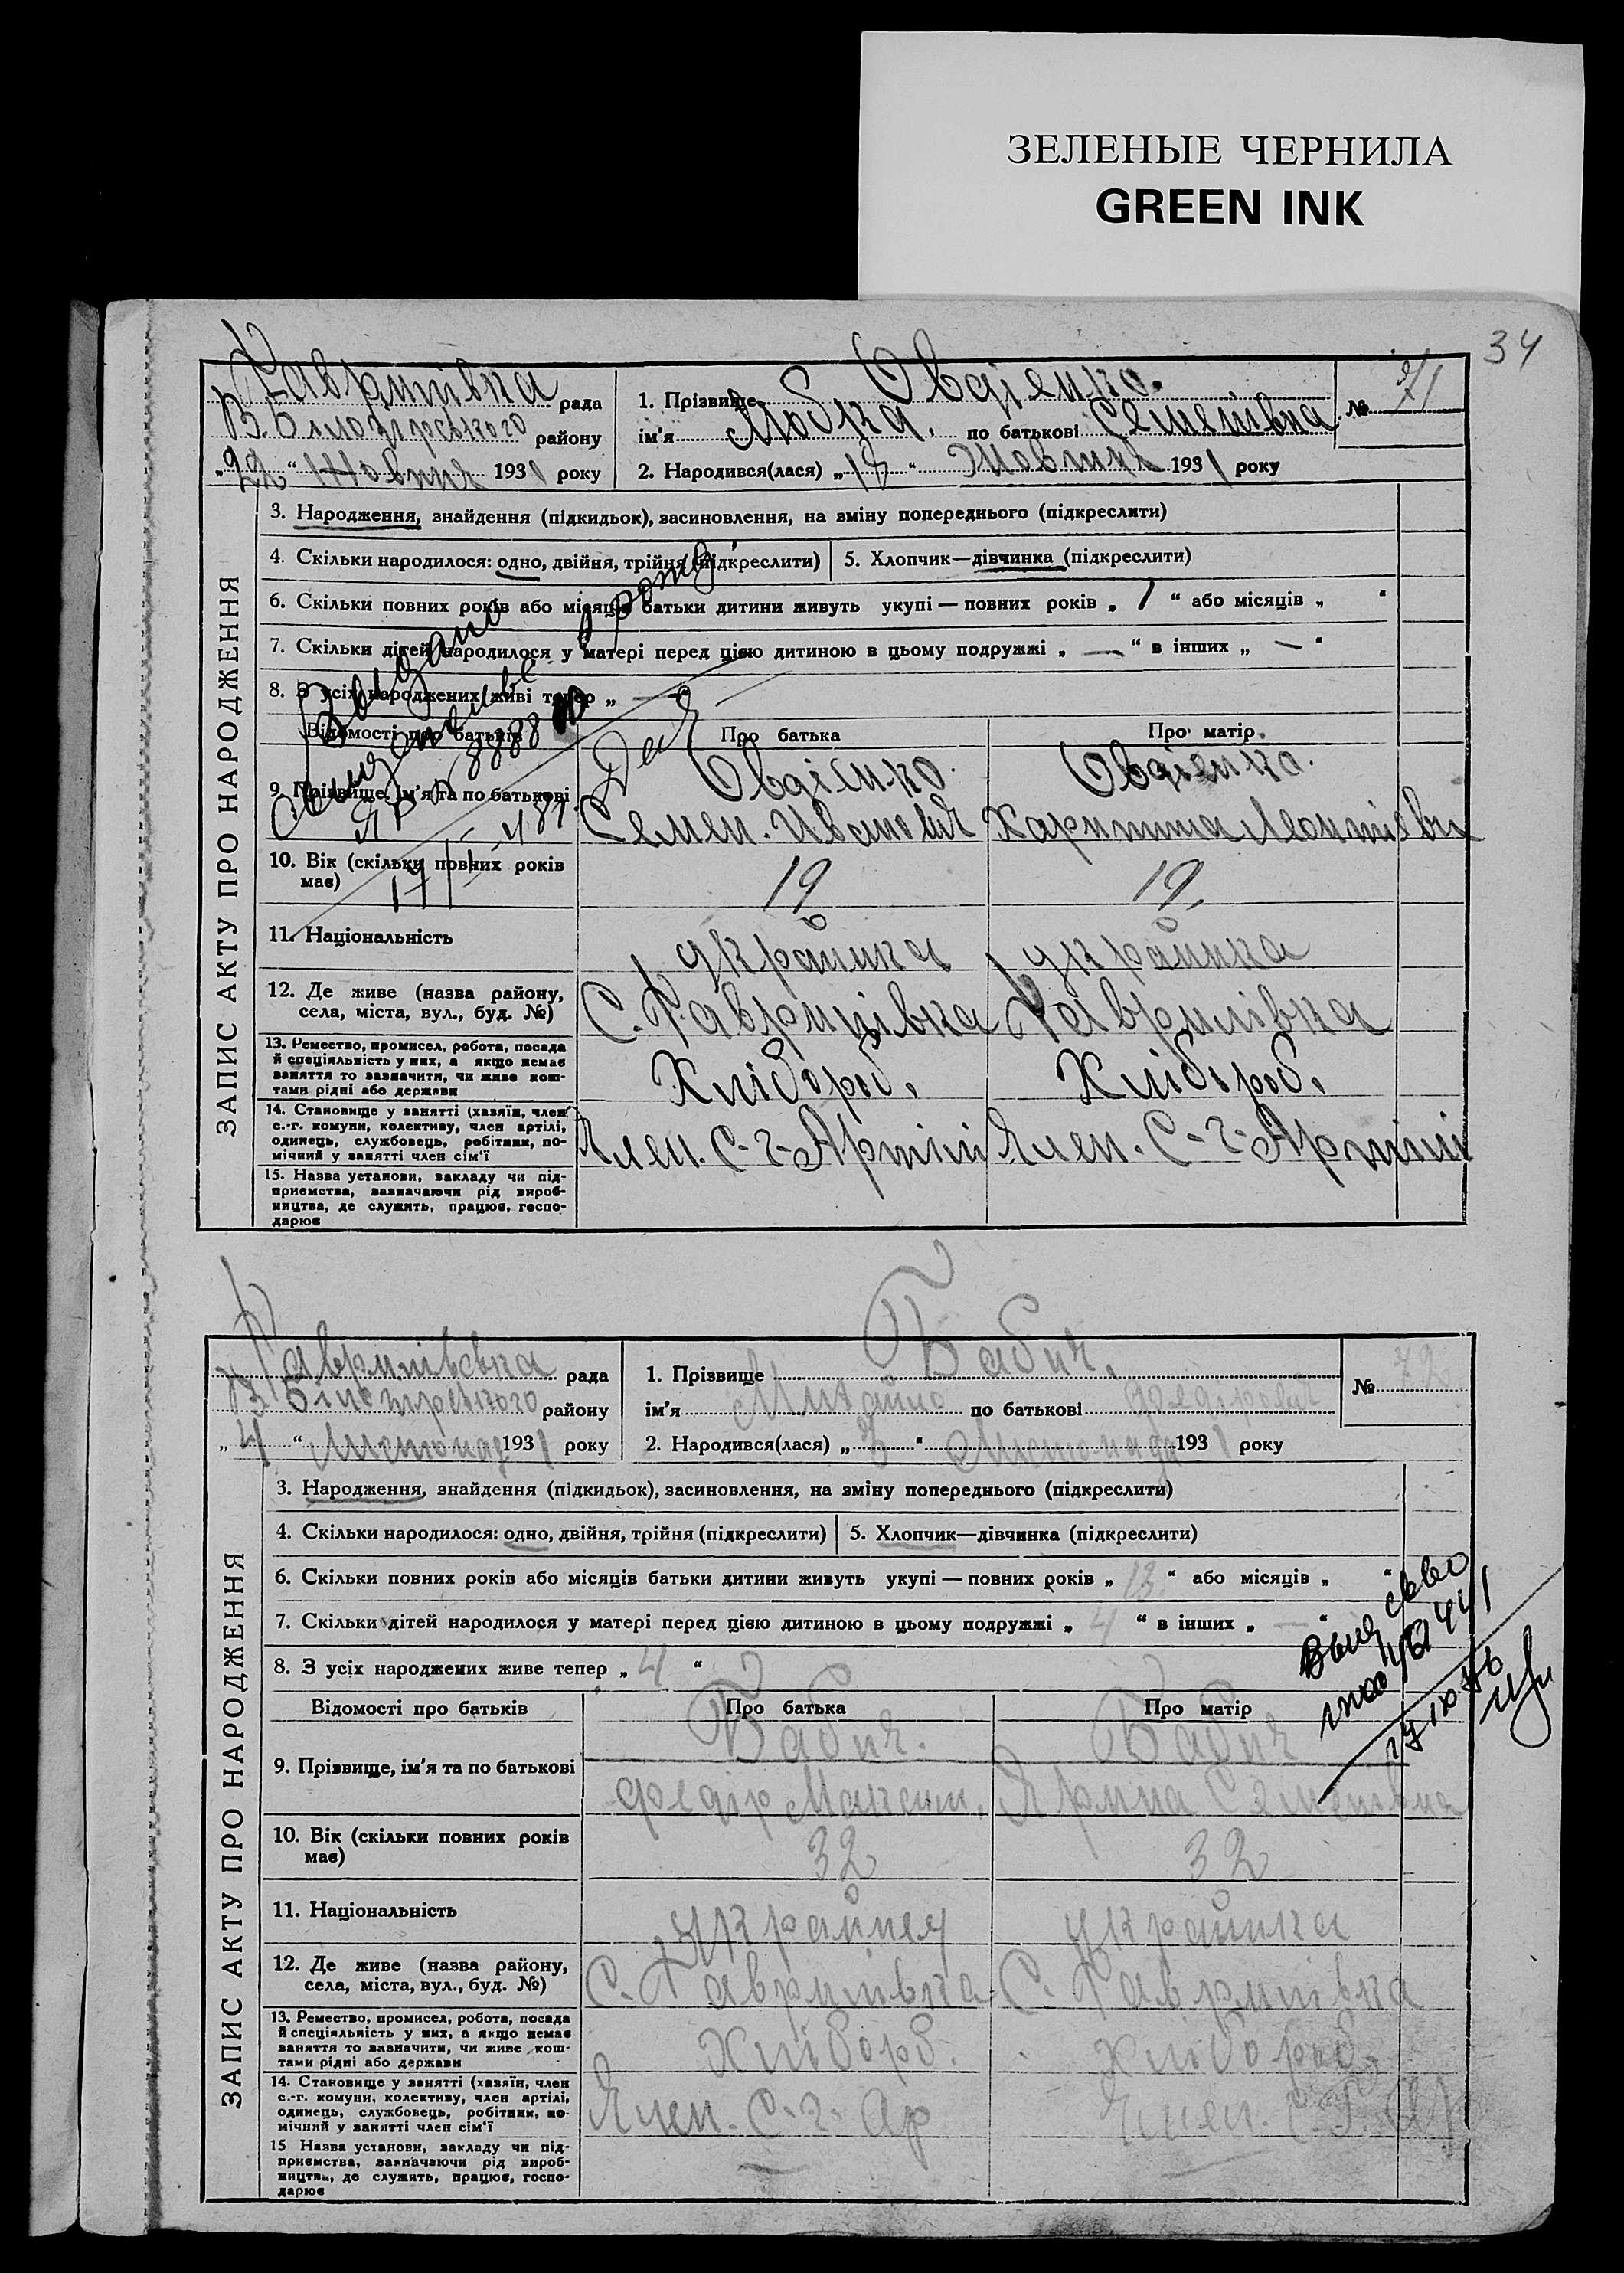 ЗЕЛЕНЫЕ ЧЕРНИЛА
GREEN INK
34
Гаврилівка рада
В. Білозірського району
„22“ Жовтня 1931 року
1. Прізвище Овдієнко.
ім'я Любка. по батькові Семенівна
№ 71
2. Народився(лася) „18“ Жовтня 1931 року
ЗАПИС АКТУ ПРО НАРОДЖЕННЯ
3. Народження, знайдення (підкидьок), васиновлення, на зміну попереднього (підкреслити)
4. Скільки народилося: одно, двійня, трійня (підкреслити) 5. Хлопчик—дівчинка (підкреслити)
6. Скільки повних років або місяців батьки дитини живуть укупі — повних років „ 1 “ або місяців „ “
7. Скільки дітей народилося у матері перед цією дитиною в цьому подружжі „ — “ в інших „ — “
8. З усіх народжених живі тепер „ — “
Выдано
Відомості про батьків Про батька Про матір
9. Прізвище, ім'я та по батькові
Овдієнко. Овдієнко.
Семен. Иванович Харитина Леонтіевна
10. Вік (скільки повних років має) 19 19.
11. Національність українка українка
12. Де живе (назва району, села, міста, вул., буд. №) С. Гаврилівка Гаврилівка
13. Ремество, промисел, робота, посада й спеціяльність у них, а якщо немає заняття то зазначити, чи живе коштами рідні або держави Хлібороб. Хлібороб.
14. Становище у занятті (хазяїн, член с.-г. комуни, колективу, член артілі, одинець, службовець, робітник, помічний у занятті член сім'ї Член. С-г-Артілі Член. С-г-Артілі
15. Назва установи, закладу чи підприємства, зазначаючи рід виробництва, де служить, працює, господарює
Гаврилівська рада
В Білозірського району
„4“ Листопад 1931 року
1. Прізвище Бабич.
ім'я Михайло по батькові Федорович
№ 72
2. Народився(лася) „ “ Листопада 1931 року
ЗАПИС АКТУ ПРО НАРОДЖЕННЯ
3. Народження, знайдення (підкидьок), засиновлення, на зміну попереднього (підкреслити)
4. Скільки народилося: одно, двійня, трійня (підкреслити) 5. Хлопчик—дівчинка (підкреслити)
6. Скільки повних років або місяців батьки дитини живуть укупі — повних років „ 13 “ або місяців „ “
7. Скільки дітей народилося у матері перед цією дитиною в цьому подружжі „ 4 “ в інших „ — “
8. З усіх народжених живе тепер „ 4 “
Відомості про батьків Про батька Про матір
9. Прізвище, ім'я та по батькові
Бабич. Бабич
Федір Максим. Ярина Семенівна
10. Вік (скільки повних років має) 32 32
11. Національність Українец українка
12. Де живе (назва району, села, міста, вул., буд. №) С. Гаврилівка С. Гаврилівка
13. Ремество, промисел, робота, посада й спеціяльність у них, а якщо немає заняття то зазначити, чи живе коштами рідні або держави Хлібороб. Хлібороб.
14. Становище у занятті (хазяїн, член с.-г. комуни, колективу, член артілі, одинець, службовець, робітник, помічний у занятті член сім'ї Член. С-г-ар Член. С. Г.
15 Назва установи, закладу чи підприємства, зазначаючи рід виробництва, де служить, працює, господарює